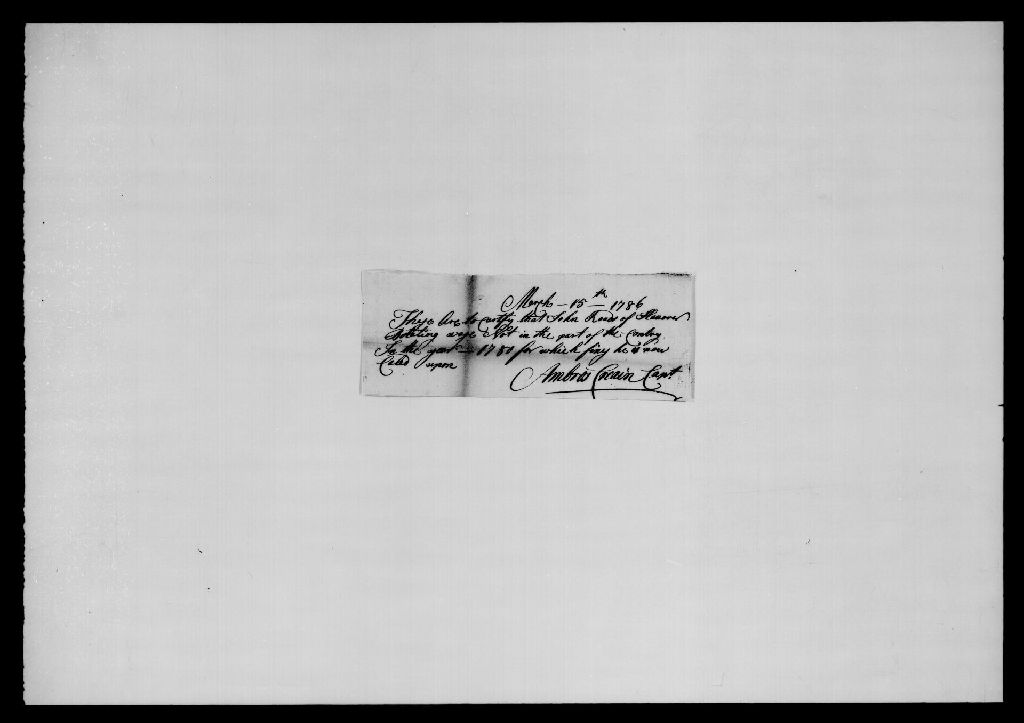 March – 15th – 1786
Thise Are to certify that John Reed of Hanover
was Not in the part of the Contry
In the year – 1780 for which finy he is now
Caled upon
Ambros Creain Capt